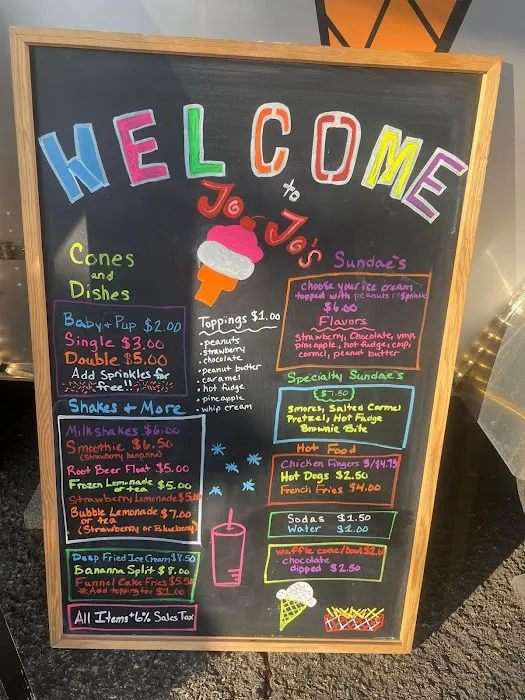 WELCOME
to
Jo Jo's
Cones
and
Dishes
Baby + Pup $2.00
Single $3.00
Double $5.00
Add Sprinkles for
free!!
Shakes + More
Milkshakes $6.00
Smoothie $6.50
(Strawberry bananna)
Root Beer Float $5.00
Frozen Lemonade
or tea $5.00
Strawberry Lemonade
Bubble Lemonade $7.00
or tea
(Strawberry or Blueberry)
Deep Fried Ice Cream $8.50
Bananna Split $8.00
Funnel Cake Fries $5.50
*Add topping for $1.00
All Items + 6% Sales Tax
Toppings $1.00
• peanuts
• strawberry
• chocolate
• peanut butter
• caramel
• hot fudge
• pineapple
• whip cream
Sundae's
choose your ice cream
topped with peanuts
$6.00
Flavors
Strawberry, Chocolate,
pineapple, hot fudge,
carmel, peanut butter
Specialty Sundae's
$7.50
Smores, Salted Carmel
Pretzel, Hot Fudge
Brownie Bite
Hot Food
Chicken Fingers
Hot Dogs $2.50
French Fries $4.00
Sodas $1.50
Water $1.00
waffle cone/bowl
chocolate
dipped $2.50